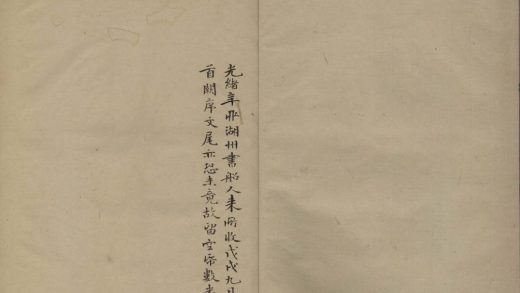 光緒辛卯湖州書船人來所收戊戌九月
首闕序文尾亦恐未竟故留空帋數